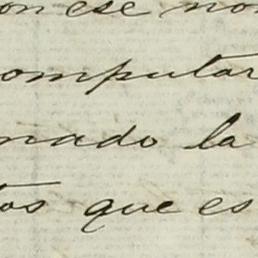 on ese no
omputar
nado la
tos que es